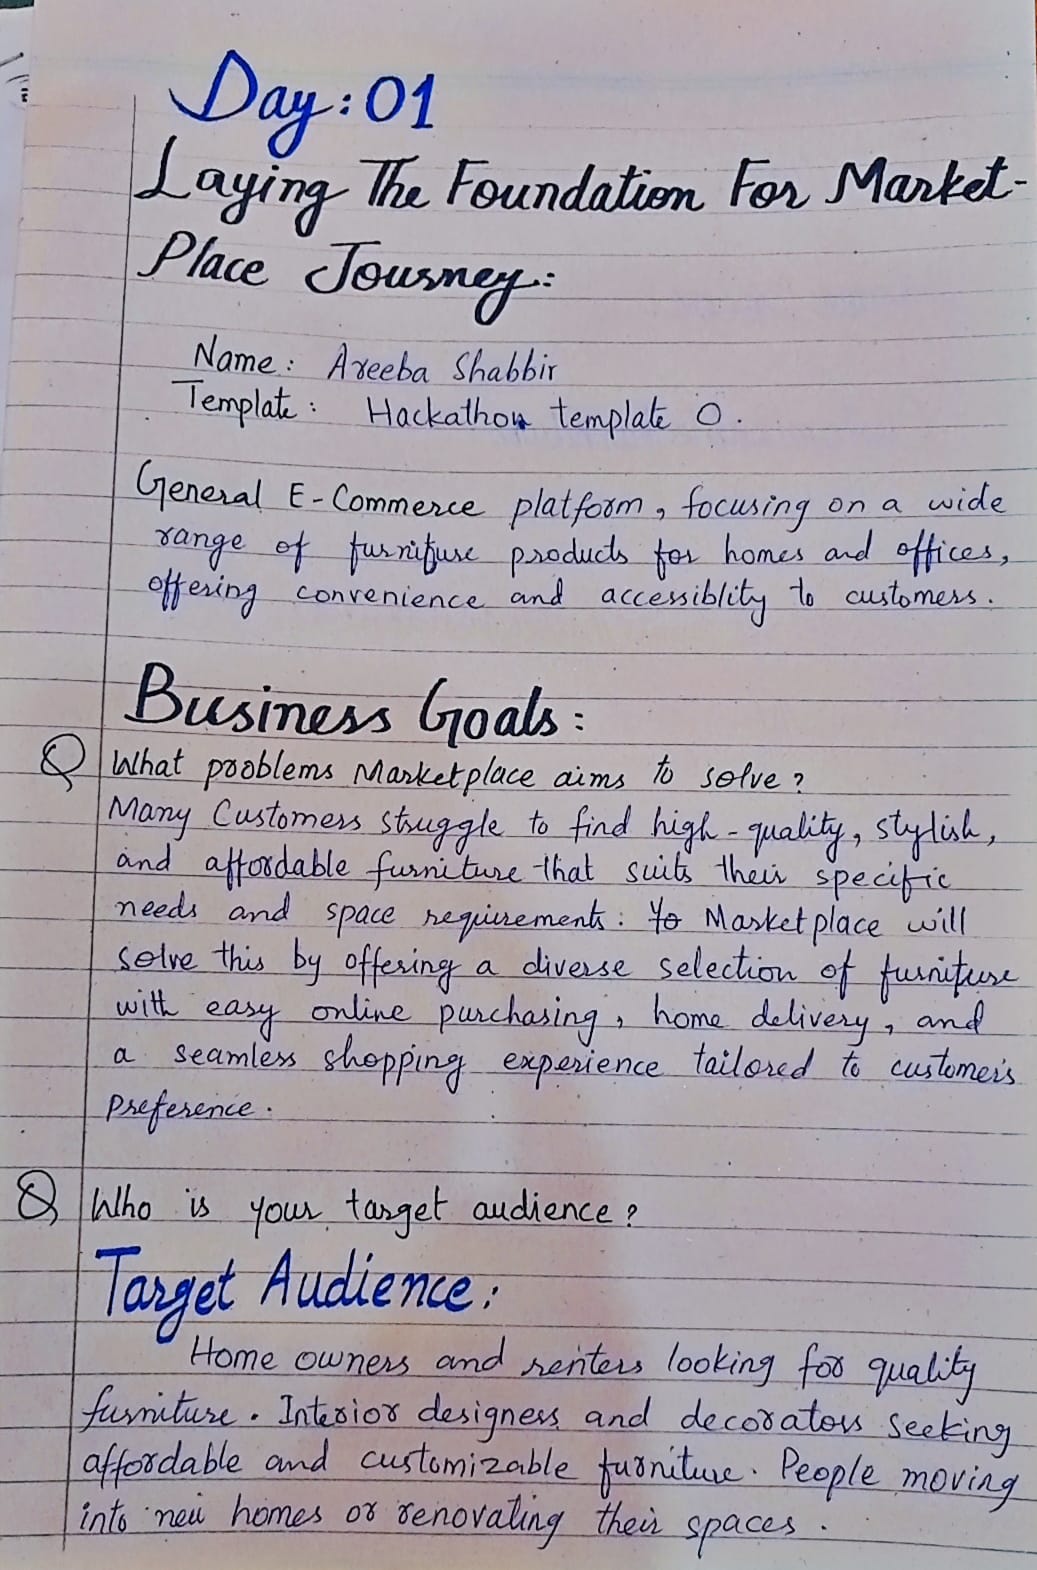 Day: 01
Laying The Foundation For Market-
Place Journey:
Name: Areeba Shabbir
Template: Hackathon template 0.
General E-Commerce platform, focusing on a wide
range of furniture products for homes and offices,
offering convenience and accessiblity to customers.
Business Goals:
Q What problems Marketplace aims to solve?
Many Customers struggle to find high-quality, stylish,
and affordable furniture that suits their specific
needs and space requirements. Marketplace will
solve this by offering a diverse selection of furniture
with easy online purchasing, home delivery, and
a seamless shopping experience tailored to customers
preference.
Q Who is your target audience?
Target Audience:
Home owners and renters looking for quality
furniture. Interior designers and decorators seeking
affordable and customizable furniture. People moving
into new homes or renovating their spaces.